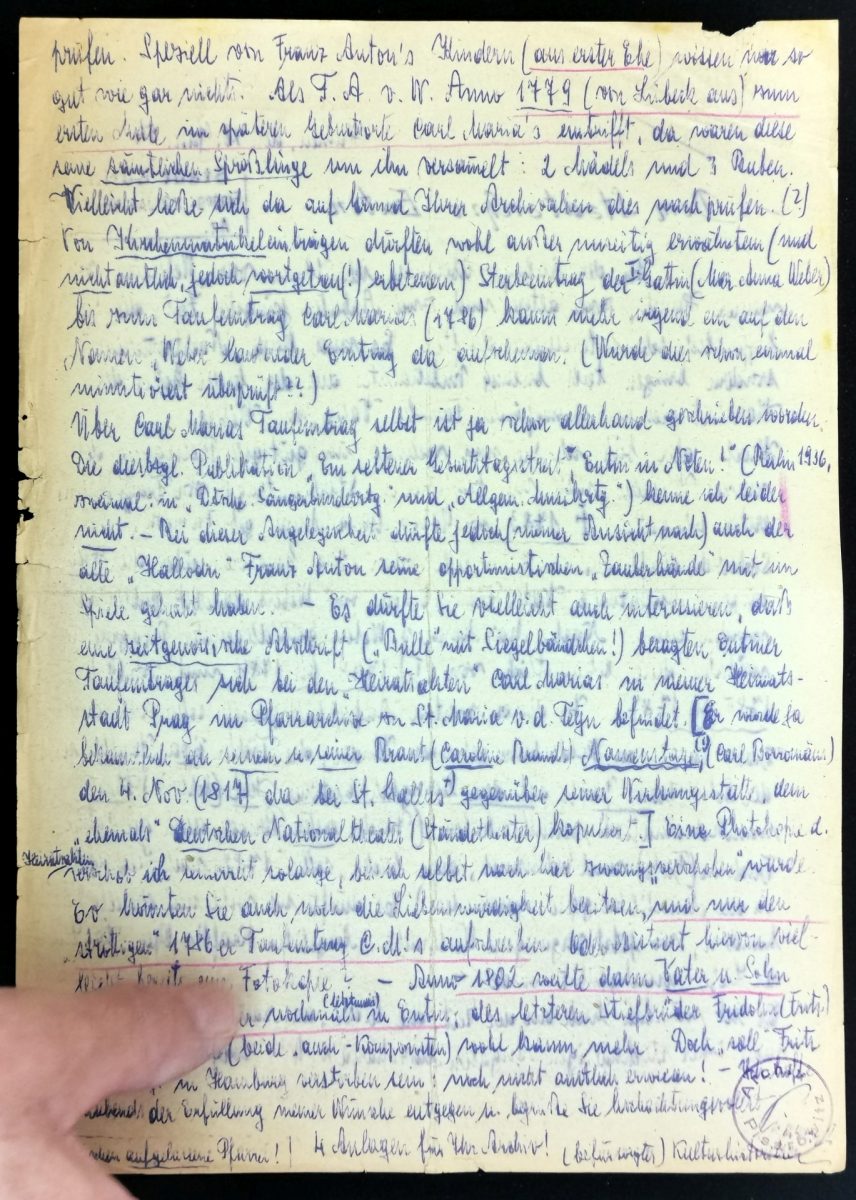 prüfen. Speziell von Franz Anton's Kindern (aus erster Ehe) wissen wir so
gut wie gar nichts. Als F. A. v. W. Anno 1779 (von Lübeck aus) zum
ersten Male im späteren Geburtsorte Carl Maria's eintrifft, da waren diese
seine sämtlichen Sprößlinge um ihn versammelt: 2 Mädels und 3 Buben.
Vielleicht ließe sich da auf Grund Ihrer Archivalien dies nachprüfen. (?)
Von Kirchenmatrikeleinträgen dürften wohl außer unseitig erwähntem (und
nichtamtlich, jedoch wortgetreu(!) erbetenem) Sterbeeintrag der I. Gattin (Mar. Anna Weber)
bis zum Taufeintrag Carl Marias (1786) kaum mehr irgend ein auf den
Namen „Weber" lautender Eintrag da aufscheinen. (Wurde dies schon einmal
überprüft??)
Über Carl Marias Taufeintrag selbst ist ja schon allerhand geschrieben worden.
Die diesbzgl. Publikation „Ein seltener Geburtstagsstreit", „Eutin in Nöten!" (Berlin 1936,
zweimal: in „Dtsche Sängerbundesztg." und „Allgem. Musikztg.") kenne ich leider
nicht. – Bei dieser Angelegenheit dürfte jedoch (meiner Ansicht nach) auch der
alte „Hallodri" Franz Anton seine opportunistischen „Zauberhände" mit im
Spiele gehabt haben. – Es dürfte Sie vielleicht auch interessieren, daß
eine zeitgenössische Abschrift („Bulle" mit Siegelbändchen!) besagten Eutiner
Taufeintrages sich bei den „Heiratsakten" Carl Marias in meiner Heimats-
stadt Prag im Pfarrarchive von St. Maria v. d. Teyn befindet. [Er wurde ja
bekanntlich an seinem u. seiner Braut (Caroline Brandt) Namenstage, (Carl Borromäus)
den 4. Nov. (1817) da bei St. Gallus gegenüber seiner Wirkungsstätte, dem
„ehemals" Deutschen Nationaltheater (Ständetheater) kopuliert.] Eine Photokopie d.
Heiratsakten
verschob ich seinerzeit solange, bis ich selbst nach hier zwangs„verschoben" wurde.
Ev. könnten Sie auch noch die Liebenswürdigkeit besitzen, und nur den
„strittigen" 1786er Taufeintrag C. M.'s aufschreiben. Oder existiert hiervon viel-
leicht bereits eine Fotokopie? – Anno 1802 weilte dann Vater u. Sohn
(letztmals)
nochmals in Eutin; des letzteren Stiefbrüder Fridolin (Fritz)
(beide „auch"-Komponisten) wohl kaum mehr. Doch „soll" Fritz
in Hamburg verstorben sein: noch nicht amtlich erwiesen! –
der Erfüllung meiner Wünsche entgegen u. begrüße Sie hochachtungsvollst
aufgelassene Pfarrei! | 4 Anlagen für Ihr Archiv!